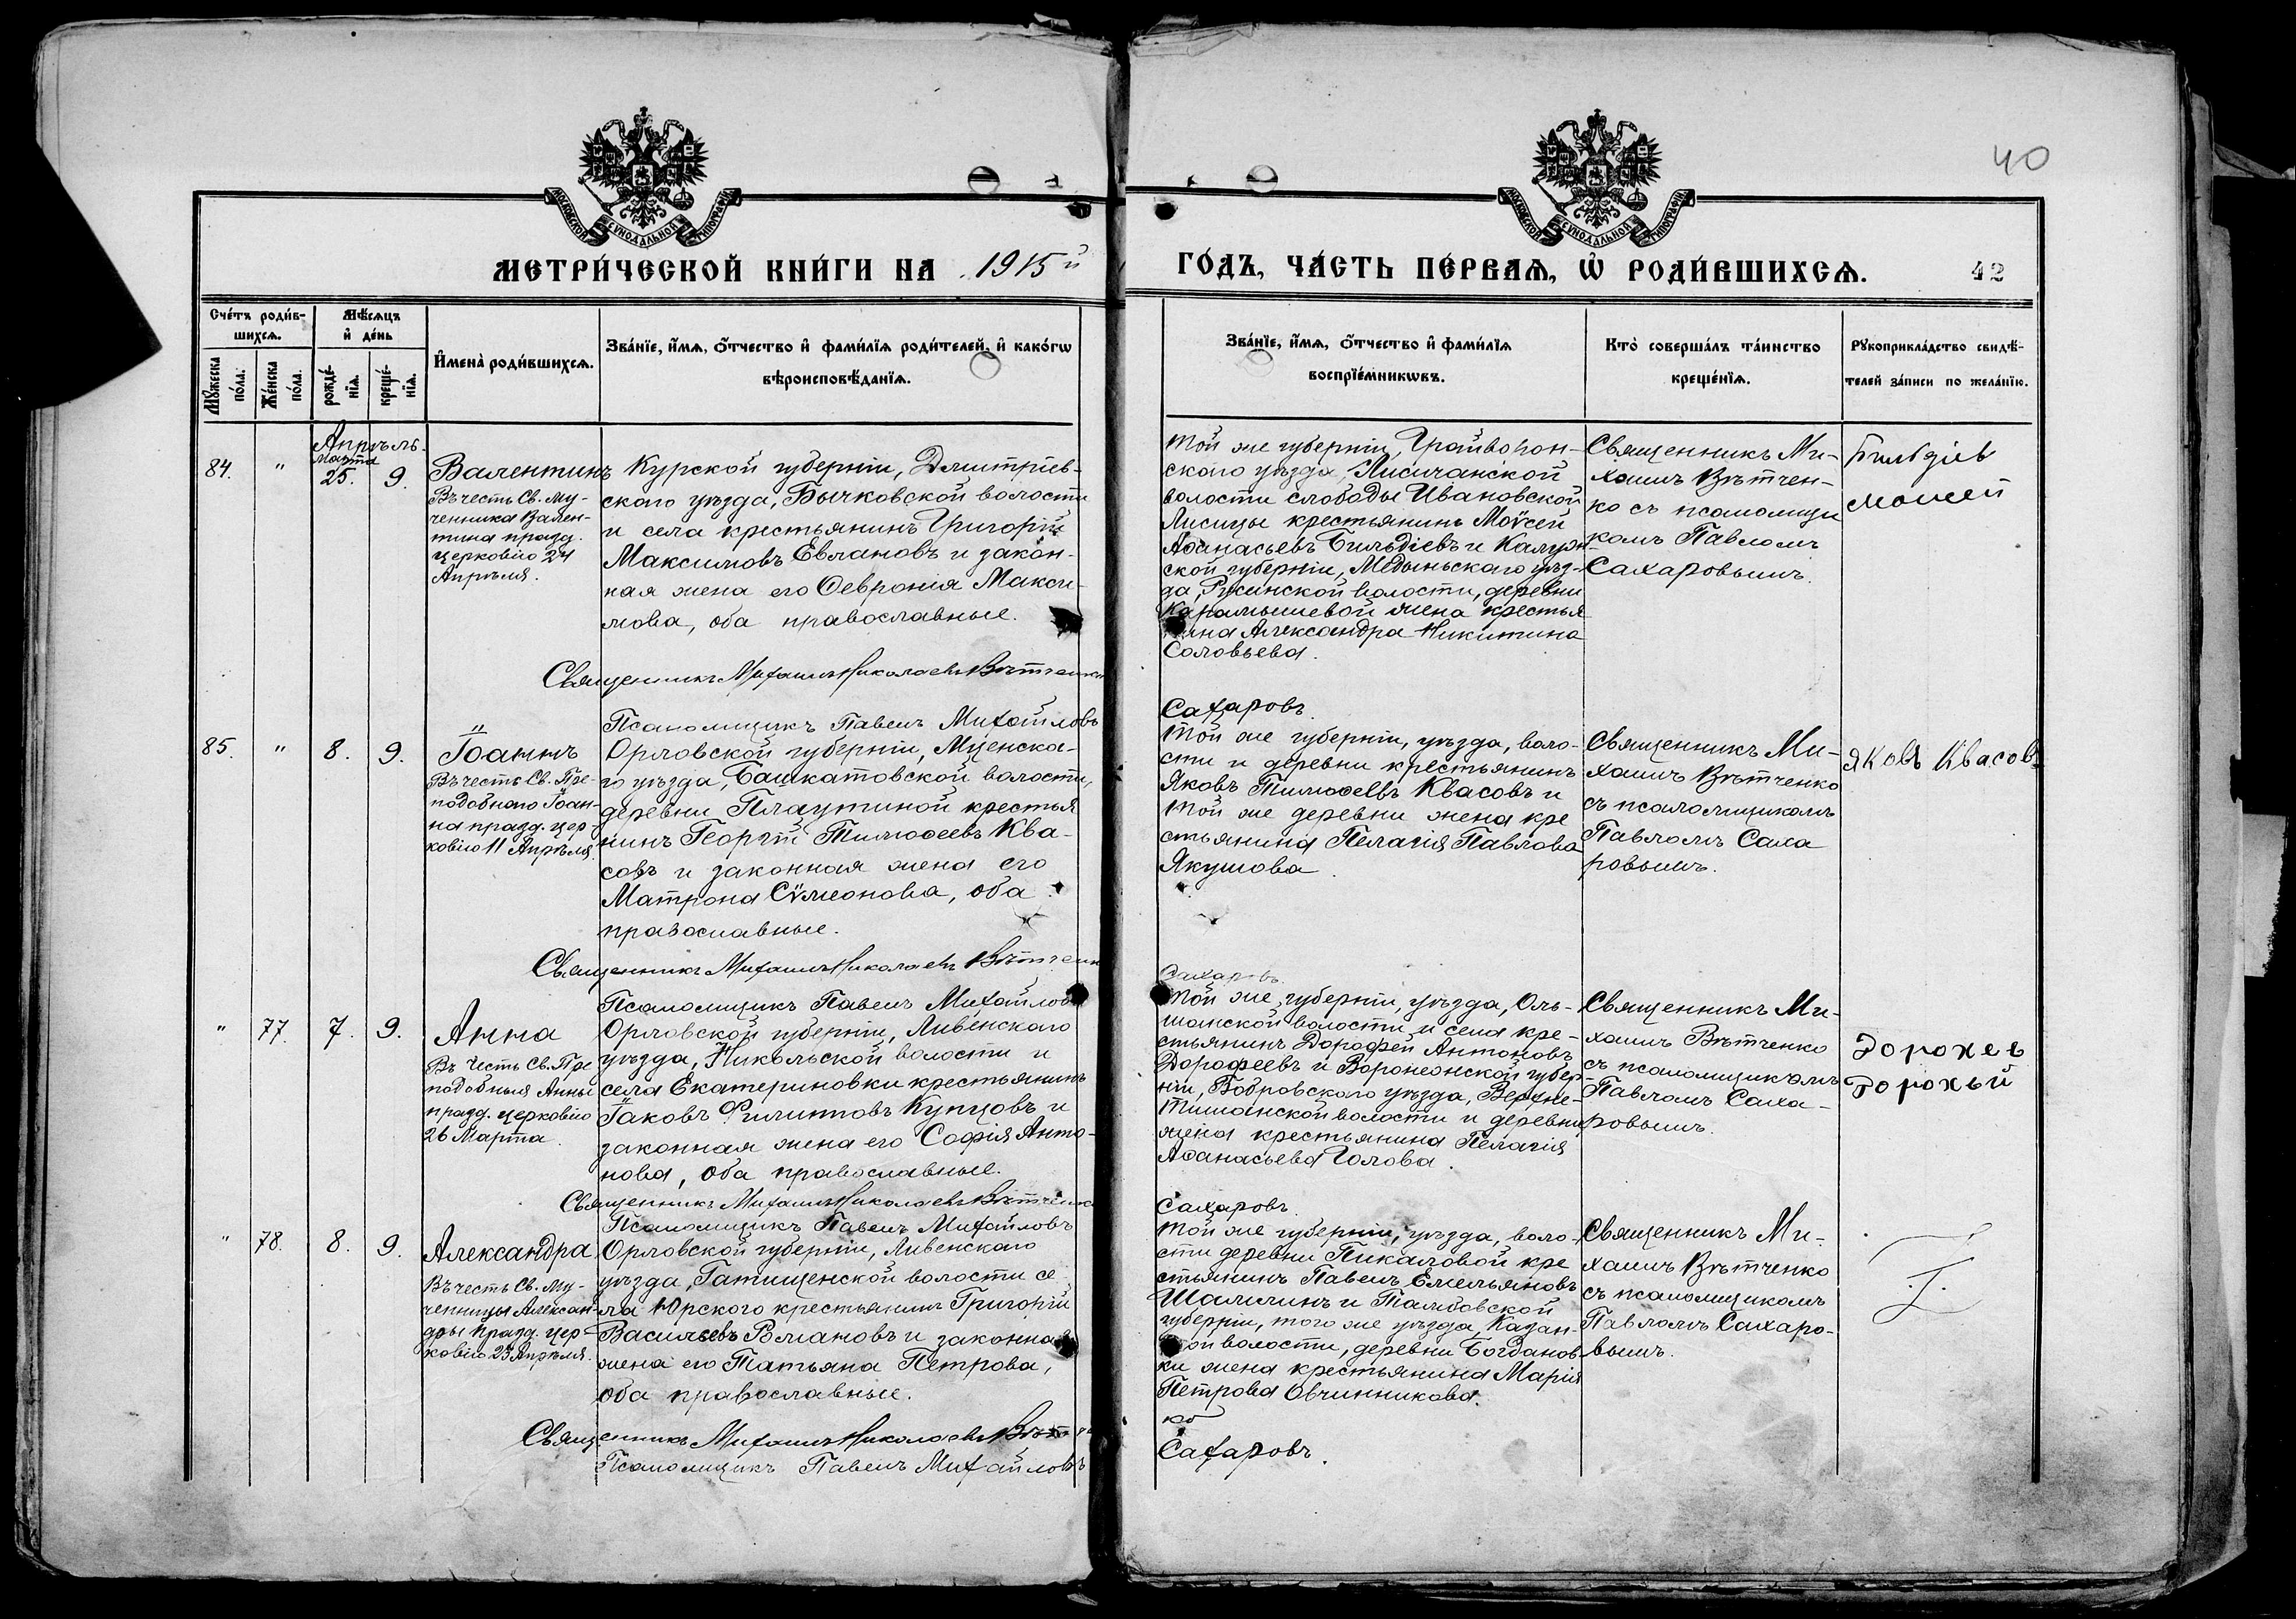 40
МОСКОВСКОЙ СѴНОДАЛЬНОЙ ТИПОГРАФІИ
МОСКОВСКОЙ СѴНОДАЛЬНОЙ ТИПОГРАФІИ
МЕТРИ́ЧЕСКОЙ КНИ́ГИ НА 1915й
ГО́ДЪ, ЧА́СТЬ ПЕ́РВАЯ, Ѡ РОДИ́ВШИХСЯ.
42
Сче́тъ роди́в-
шихся.
Мѣ́сяцъ
и де́нь
Му́жеска
по́ла.
Же́нска
по́ла.
рожде́-
нїя.
креще́-
нїя.
Имена̀ роди́вшихся.
Зва́нїе, и́мя, о́тчество и фами́лїя роди́телей, и како́гѡ
вѣроисповѣ́данїя.
Зва́нїе, и́мя, о́тчество и фами́лїя
воспрїе́мникѡвъ.
Кто̀ соверша́лъ та́инство
креще́нїя.
Рукоприкла́дство свидѣ́-
телей за́писи по жела́нїю.
Апрѣль.
Марта
84. " 25. 9.
Валентинъ
Въ честь Св. Му-
ченика Вален-
тина празд.
церковію 24
Апрѣля.
Курской губерніи, Дмитріев-
скаго уѣзда, Бычковской волости
и села крестьянинъ Григорій
Максимовъ Евлановъ и закон-
ная жена его Ѳевронія Макси-
мова, оба православные.
Священникъ Михаилъ Николаевъ Вѣтченко
Псаломщикъ Павелъ Михайловъ
Той же губерніи, Грайворон-
скаго уѣзда, Лисичанской
волости слободы Ивановской
Лисицы крестьянинъ Моѵсей
Аѳанасьевъ Бильдіевъ и Калуж-
ской губерніи, Медыньскаго уѣз-
да, волости, деревни
Карамышевой жена крестья
нина Александра Никитина
Соловьева.
Сахаровъ.
Священникъ Ми-
хаилъ Вѣтчен-
ко съ псаломщи
комъ Павломъ
Сахаровымъ.
Бильдіев
моисей
85. " 8. 9.
Іоаннъ
Въ честь Св. Пре-
подобнаго Іоан-
на празд. цер-
ковію 11 Апрѣля.
Орловской губерніи, Мценска-
го уѣзда, Башкатовской волости,
деревни Плаутиной крестья
нинъ Георгій Тимоѳеевъ Ква-
совъ и законная жена его
Матрона Сѵмеонова, оба
православные.
Священникъ Михаилъ Николаевъ Вѣтченко
Псаломщикъ Павелъ Михайловъ
Той же губерніи, уѣзда, воло-
сти и деревни крестьянинъ
Яковъ Тимоѳеевъ Квасовъ и
той же деревни жена кре
стьянина Пелагія Павлова
Якушова.
Сахаровъ.
Священникъ Ми-
хаилъ Вѣтченко
съ псаломщикомъ
Павломъ Саха
ровымъ.
яковъ Квасовъ
" 77. 7. 9.
Анна
Въ честь Св. Пре
подобныя Анны
празд. церковію
26 Марта.
Орловской губерніи, Ливенскаго
уѣзда, Никольской волости и
села Екатериновки крестьянинъ
Іаковъ Филипповъ Купцовъ и
законная жена его Софія Анто-
нова, оба православные.
Священникъ Михаилъ Николаевъ Вѣтченко
Псаломщикъ Павелъ Михайловъ
Той же губерніи, уѣзда, Оль-
шанской волости и села кре-
стьянинъ Дорофей Антоновъ
Дорофеевъ и Воронежской губер-
ніи, Бобровскаго уѣзда, Верхне-
Тишанской волости и деревни
жена крестьянина Пелагія
Аѳанасьева Голова.
Сахаровъ.
Священникъ Ми-
хаилъ Вѣтченко
съ псаломщикомъ
Павломъ Саха-
ровымъ.
Дорохев
Дорохьй
" 78. 8. 9.
Александра
Въ честь Св. Му-
ченницы Алексан-
дры празд. цер-
ковію 23 Апрѣля.
Орловской губерніи, Ливенскаго
уѣзда, Гатищенской волости се
ла Юрского крестьянинъ Григорій
Васильевъ Романовъ и законная
жена его Татьяна Петрова,
оба православные.
Священникъ Михаилъ Николаевъ Вѣтчен
Псаломщикъ Павелъ Михайловъ
Той же губерніи, уѣзда, воло-
сти деревни Пикаловой кре
стьянинъ Павелъ Емельяновъ
Шаличинъ и Тамбовской
губерніи, того же уѣзда, Казан-
ской волости, деревни Богданов-
ки жена крестьянина Марія
Петрова Овчинникова.
ко
Сахаровъ.
Священникъ Ми-
хаилъ Вѣтченко
съ псаломщикомъ
Павломъ Сахаро-
вымъ.